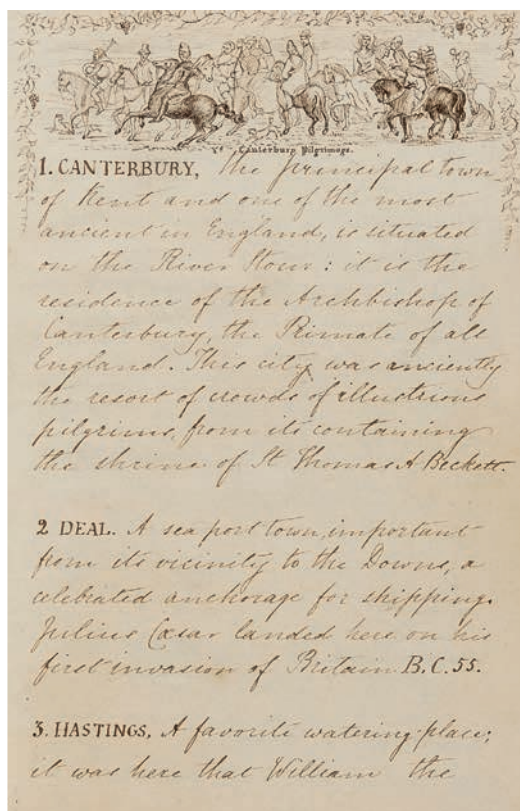 Ye Canterbury Pilgrimage.
1. CANTERBURY, the principal town
of Kent and one of the most
ancient in England, is situated
on the River Stour: it is the
residence of the Archbishop of
Canterbury, the Primate of all
England. This city was anciently
the resort of crowds of illustrious
pilgrims, from its containing
the shrine of St Thomas A Beckett.
2 DEAL. A sea port town, important
from its vicinity to the Downs, a
celebrated anchorage for shipping.
Julius Cæsar landed here on his
first invasion of Britain B.C. 55.
3. HASTINGS. A favorite watering place;
it was here that William the